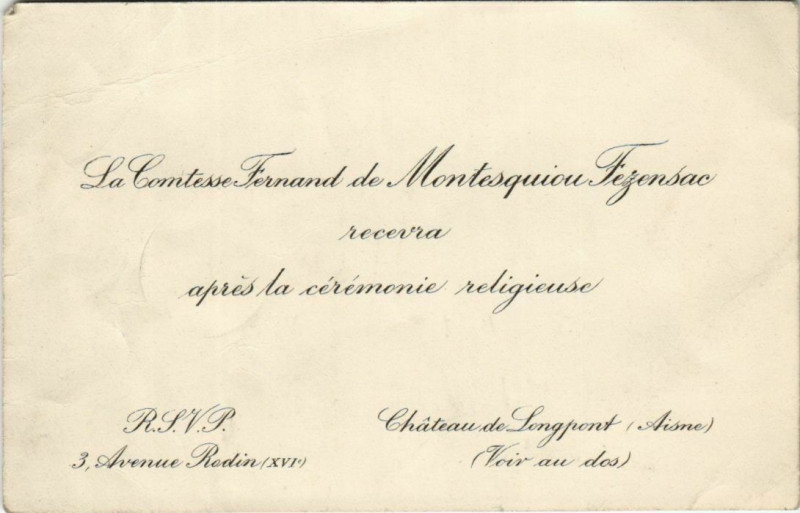 La Comtesse Fernand de Montesquiou Fezensac
recevra
après la cérémonie religieuse
R.S.V.P.
3, Avenue Rodin (XVIe)
Château de Longpont (Aisne)
(Voir au dos)